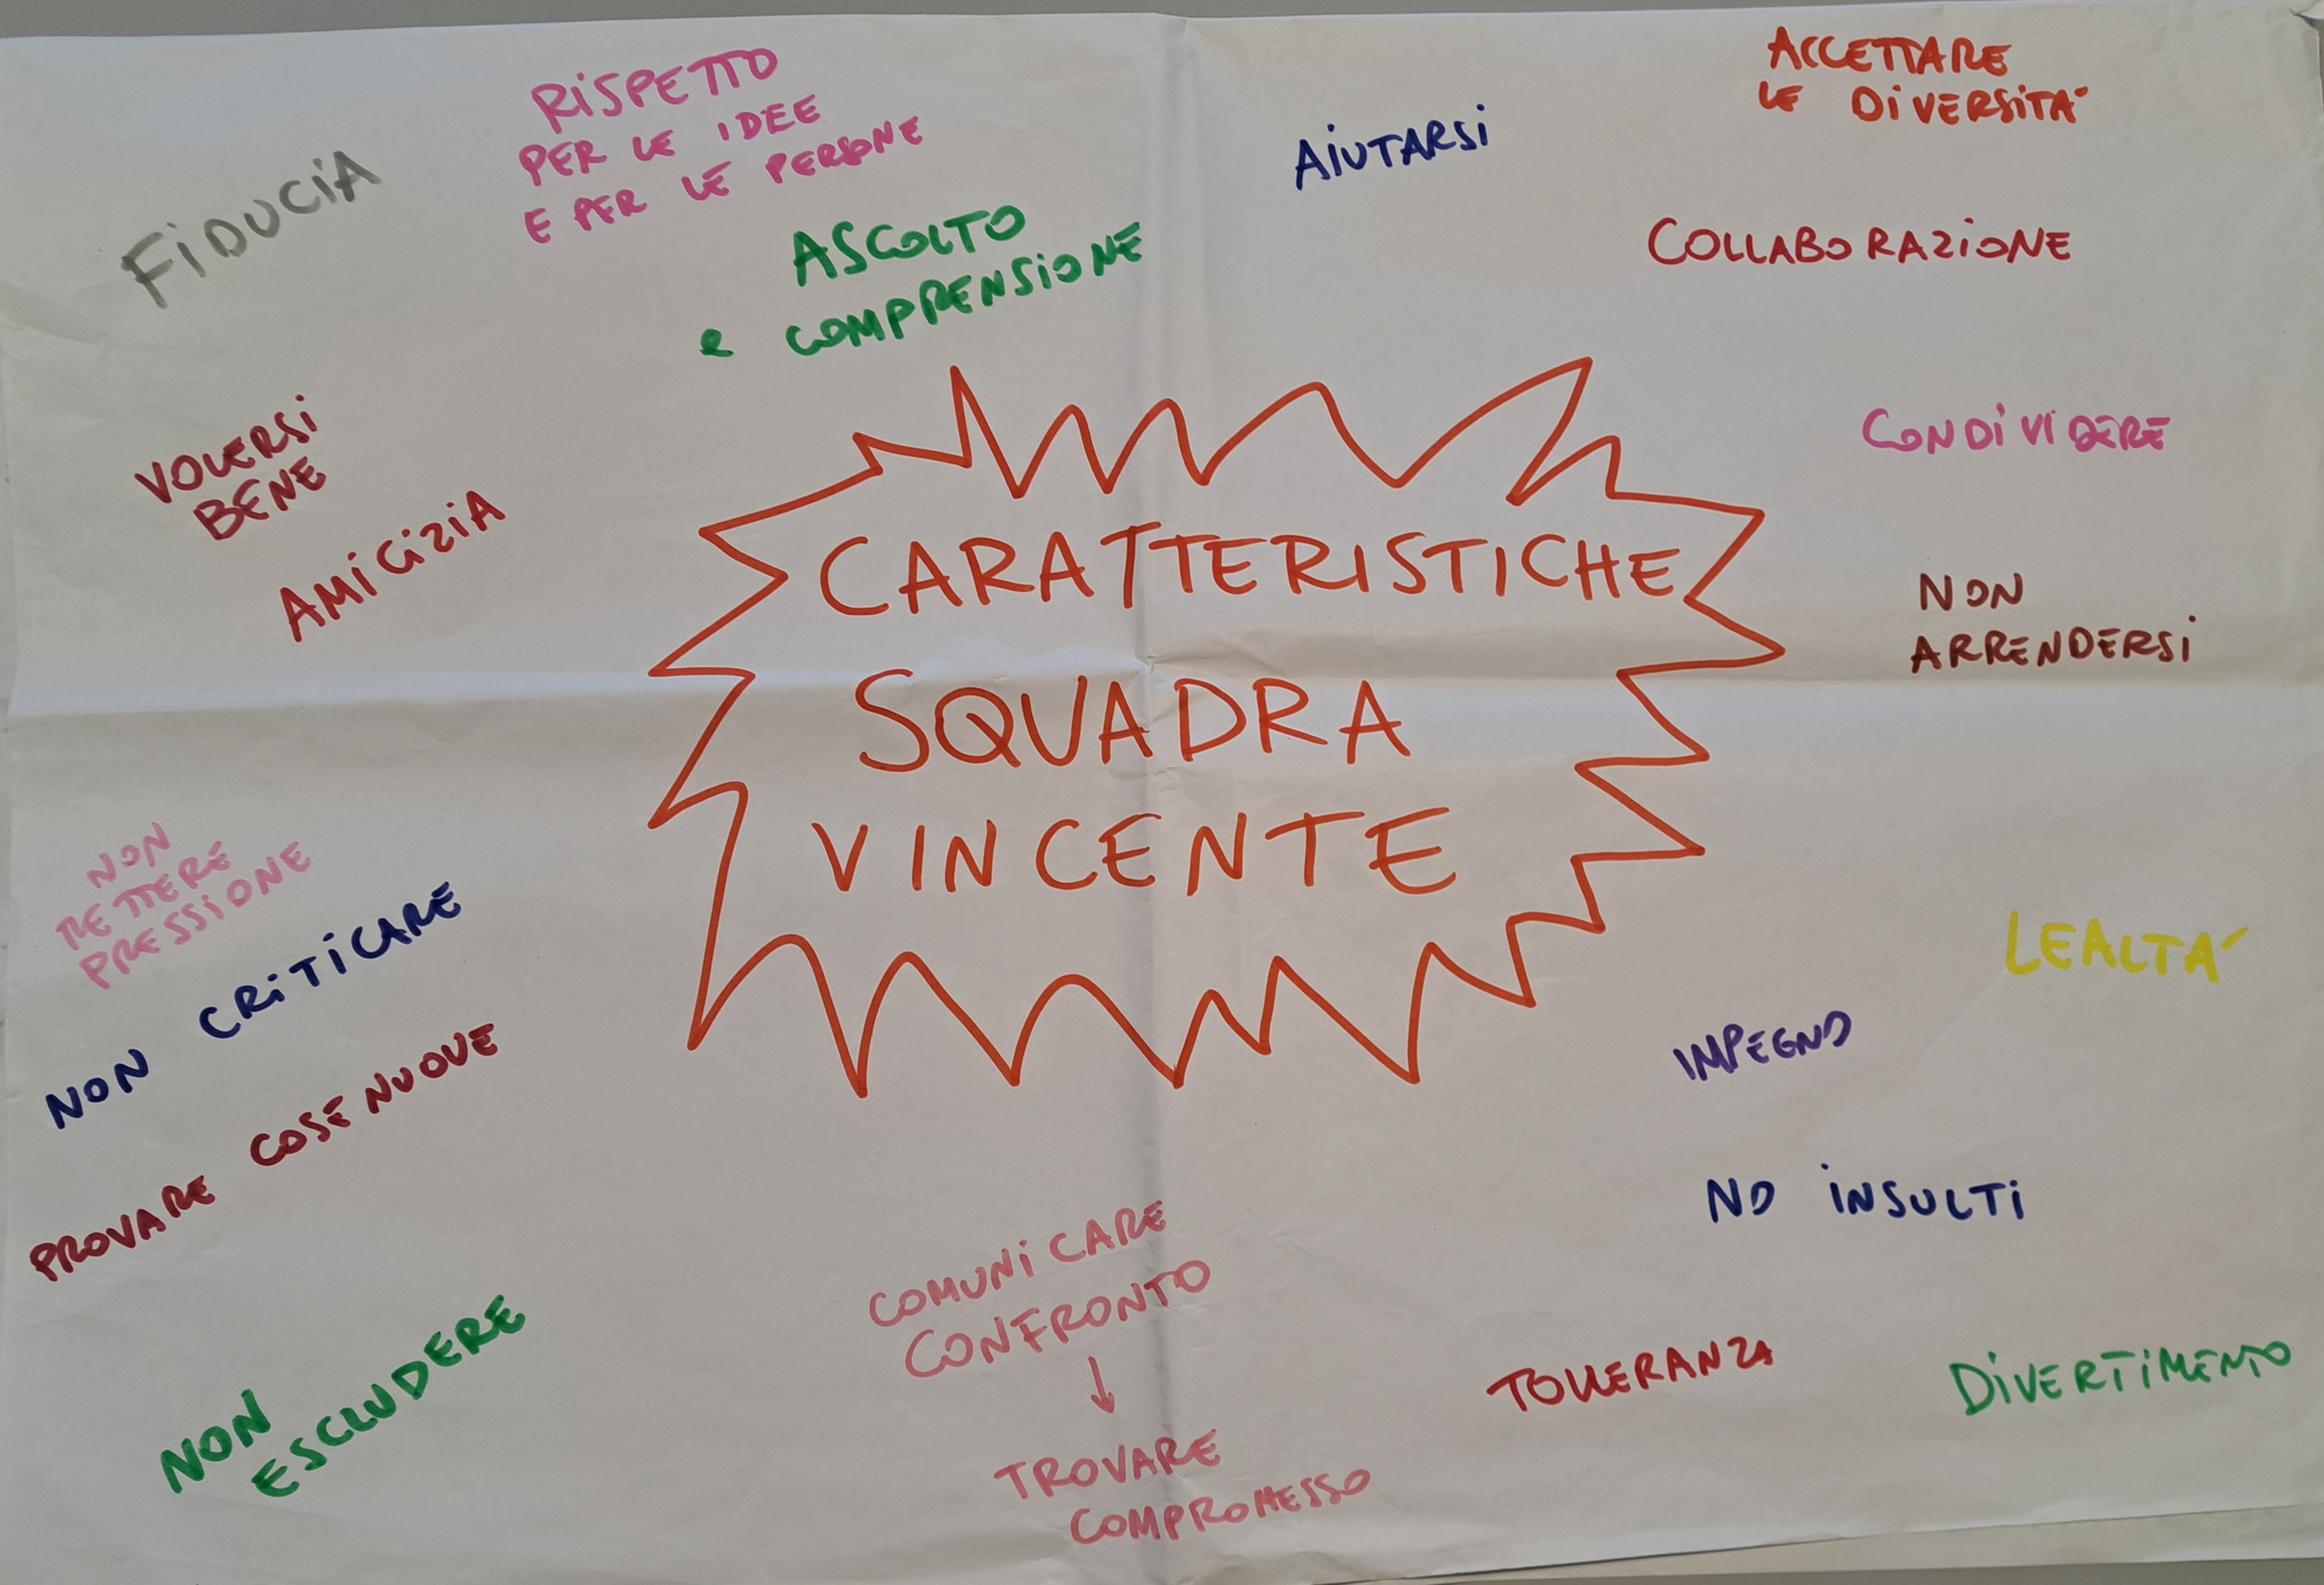 FIDUCIA
RISPETTO
PER LE IDEE
E PER LE PERSONE
ASCOLTO
e COMPRENSIONE
AIUTARSI
ACCETTARE
LE DIVERSITA'
COLLABORAZIONE
CONDIVIDERE
NON
ARRENDERSI
VOLERSI
BENE
AMICIZIA
CARATTERISTICHE
SQUADRA
VINCENTE
NON
METTERE
PRESSIONE
NON CRITICARE
PROVARE COSE NUOVE
NON
ESCLUDERE
COMUNICARE
CONFRONTO
↓
TROVARE
COMPROMESSO
LEALTA'
IMPEGNO
NO INSULTI
TOLLERANZA
DIVERTIMENTO